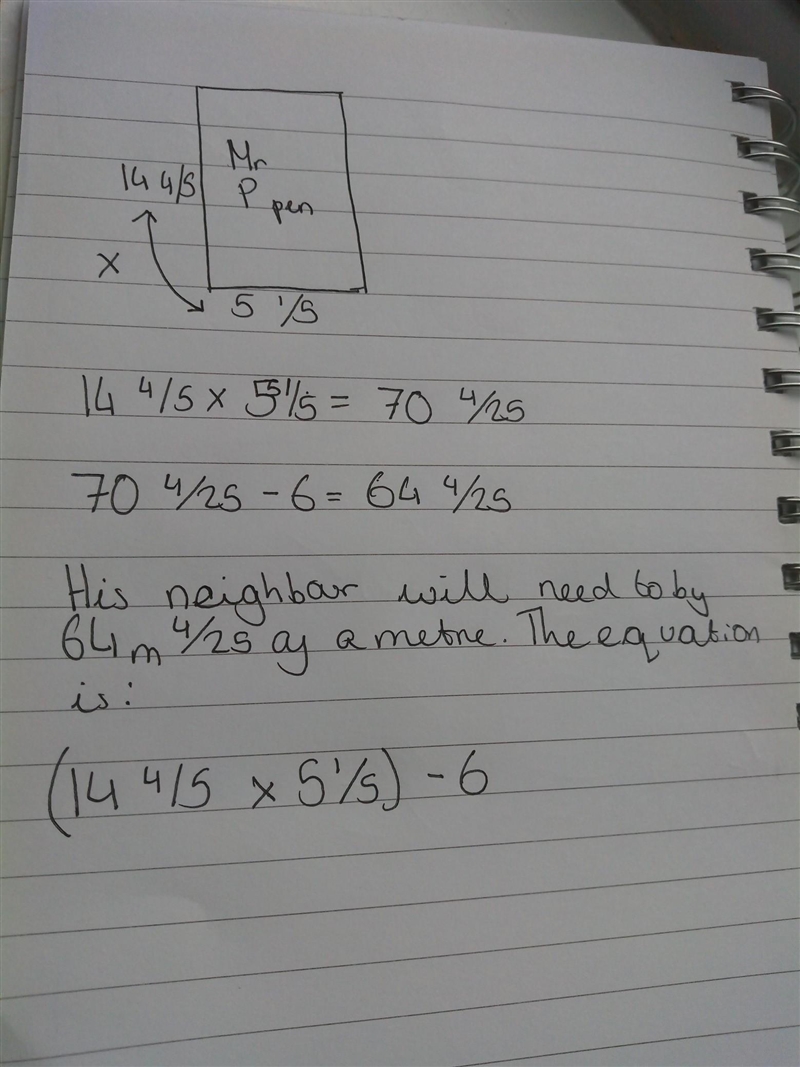 Mr
14 4/5 P pen
X
5 1/5
14 4/5 x 5 1/5 = 70 4/25
70 4/25 - 6 = 64 4/25
His neighbour will need to by
64m 4/25 of a metre. The equation
is:
(14 4/5 x 5 1/5) - 6